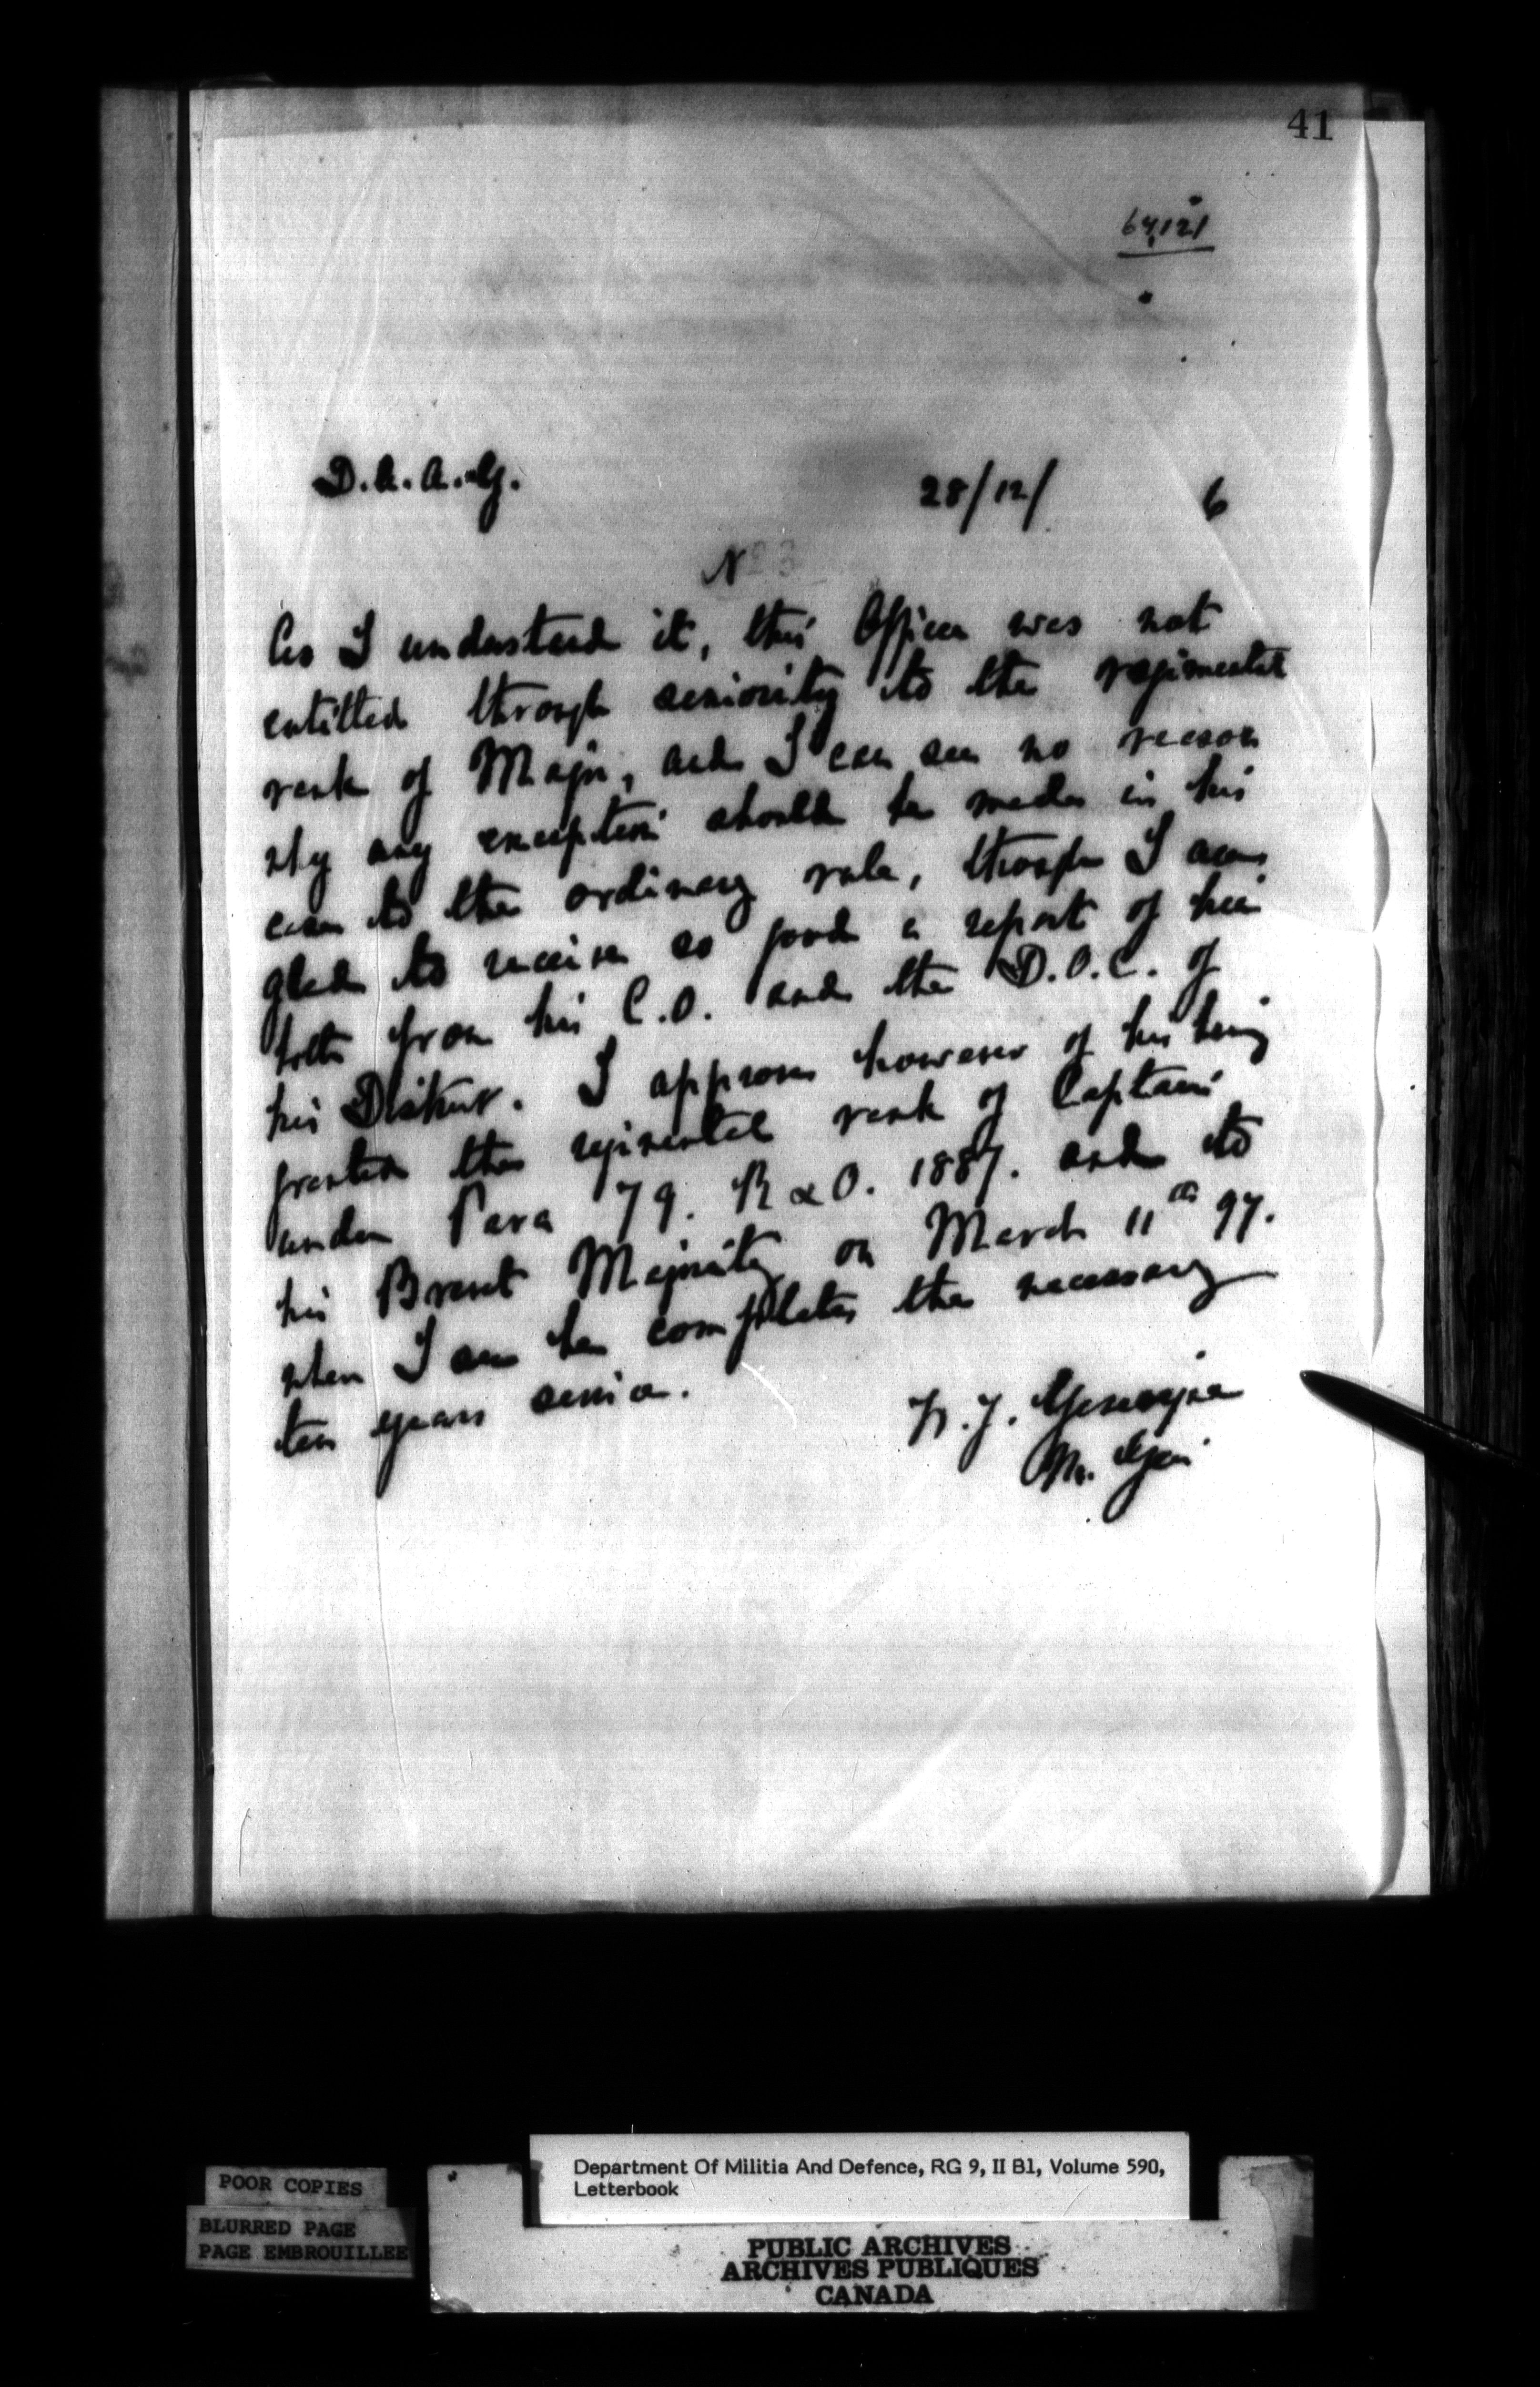 41
64121
D.A.A.G. 28/12/ 6
No 3
As I understand it, this Officer was not
entitled through seniority to the regimental
rank of Major, and I can see no reason
why any exception should be made in his
case to the ordinary rule, though I am
glad to receive so good a report of him
both from his C.O. and the D.O.C. of
his District. I approve however of his being
granted the regimental rank of Captain
under Para 79. R & O. 1887. and to
his Brevet Majority on March 11th 97.
when I see he completes the necessary
ten years service.
W. J. Gascoigne
M. Gen
POOR COPIES
BLURRED PAGE
PAGE EMBROUILLEE
Department Of Militia And Defence, RG 9, II B1, Volume 590,
Letterbook
PUBLIC ARCHIVES
ARCHIVES PUBLIQUES
CANADA